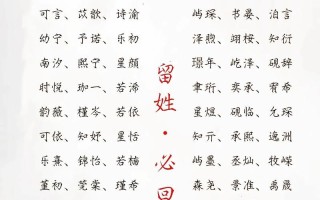 可言、苡歆、诗渝
幼宁、予诺、乐初
南汐、熙宁、星颜
时悦、珈一、若汐
韵薇、槿岑、若依
可依、知妤、星恬
乐熹、锦怡、若楠
堇初、莞棠、瑾希
留姓·必回
屿琛、书晏、泊言
泽煦、翊桉、知衍
璟年、屹泽、砚辞
聿珩、奕承、宥希
星煜、砚临、允琛
知亓、承熙、逸洲
屿墨、丞灿、牧嵘
森尧、景淮、禹晟